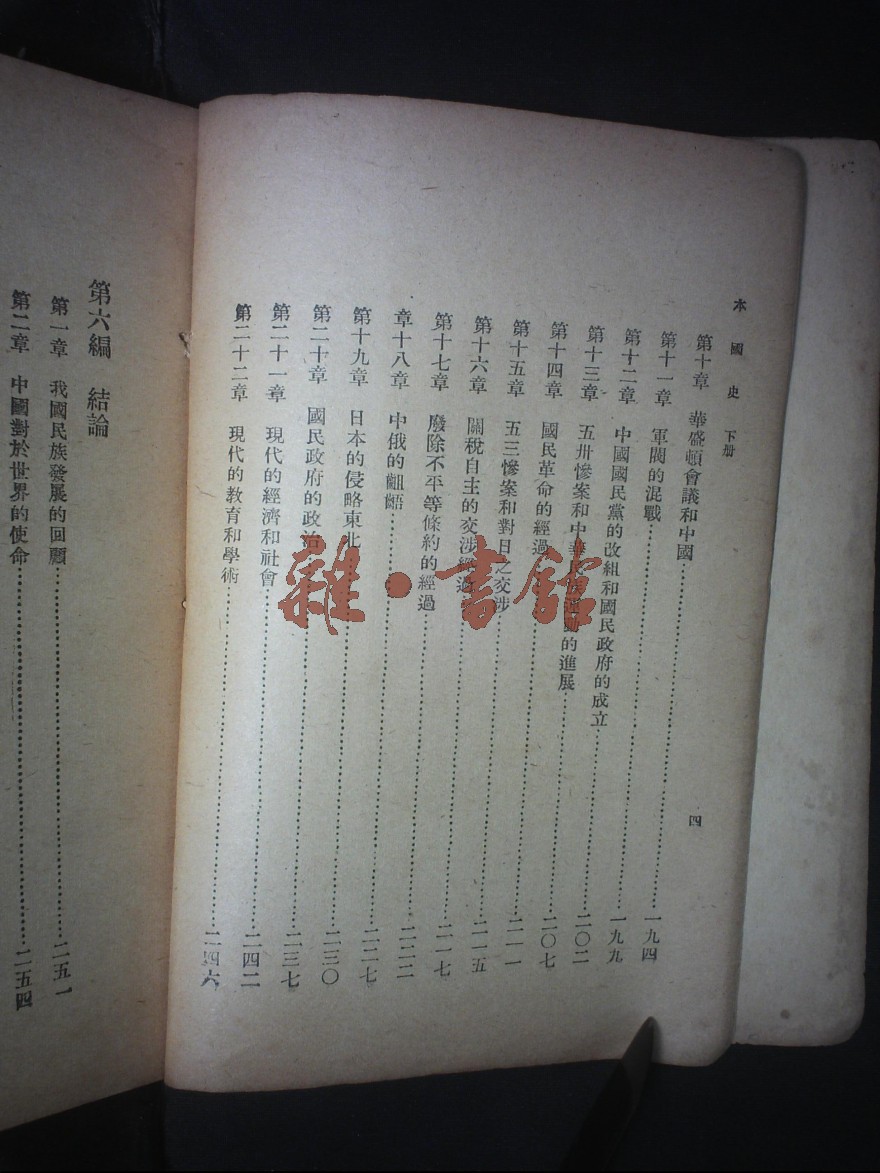 本國史 下册
四
第十章 華盛頓會議和中國……一九四
第十一章 軍閥的混戰……一九九
第十二章 中國國民黨的改組和國民政府的成立……二〇二
第十三章 五卅慘案和中華民族運動的進展……二〇七
第十四章 國民革命的經過……二一一
第十五章 五三慘案和對日之交涉……二一五
第十六章 關稅自主的交涉經過……二一七
第十七章 廢除不平等條約的經過……二二二
章十八章 中俄的齟齬……二二七
第十九章 日本的侵略東北……二三〇
第二十章 國民政府的政治……二三七
第二十一章 現代的經濟和社會……二四二
第二十二章 現代的教育和學術……二四六
第六編 結論
第一章 我國民族發展的回顧……二五一
第二章 中國對於世界的使命……二五四
雜·書館